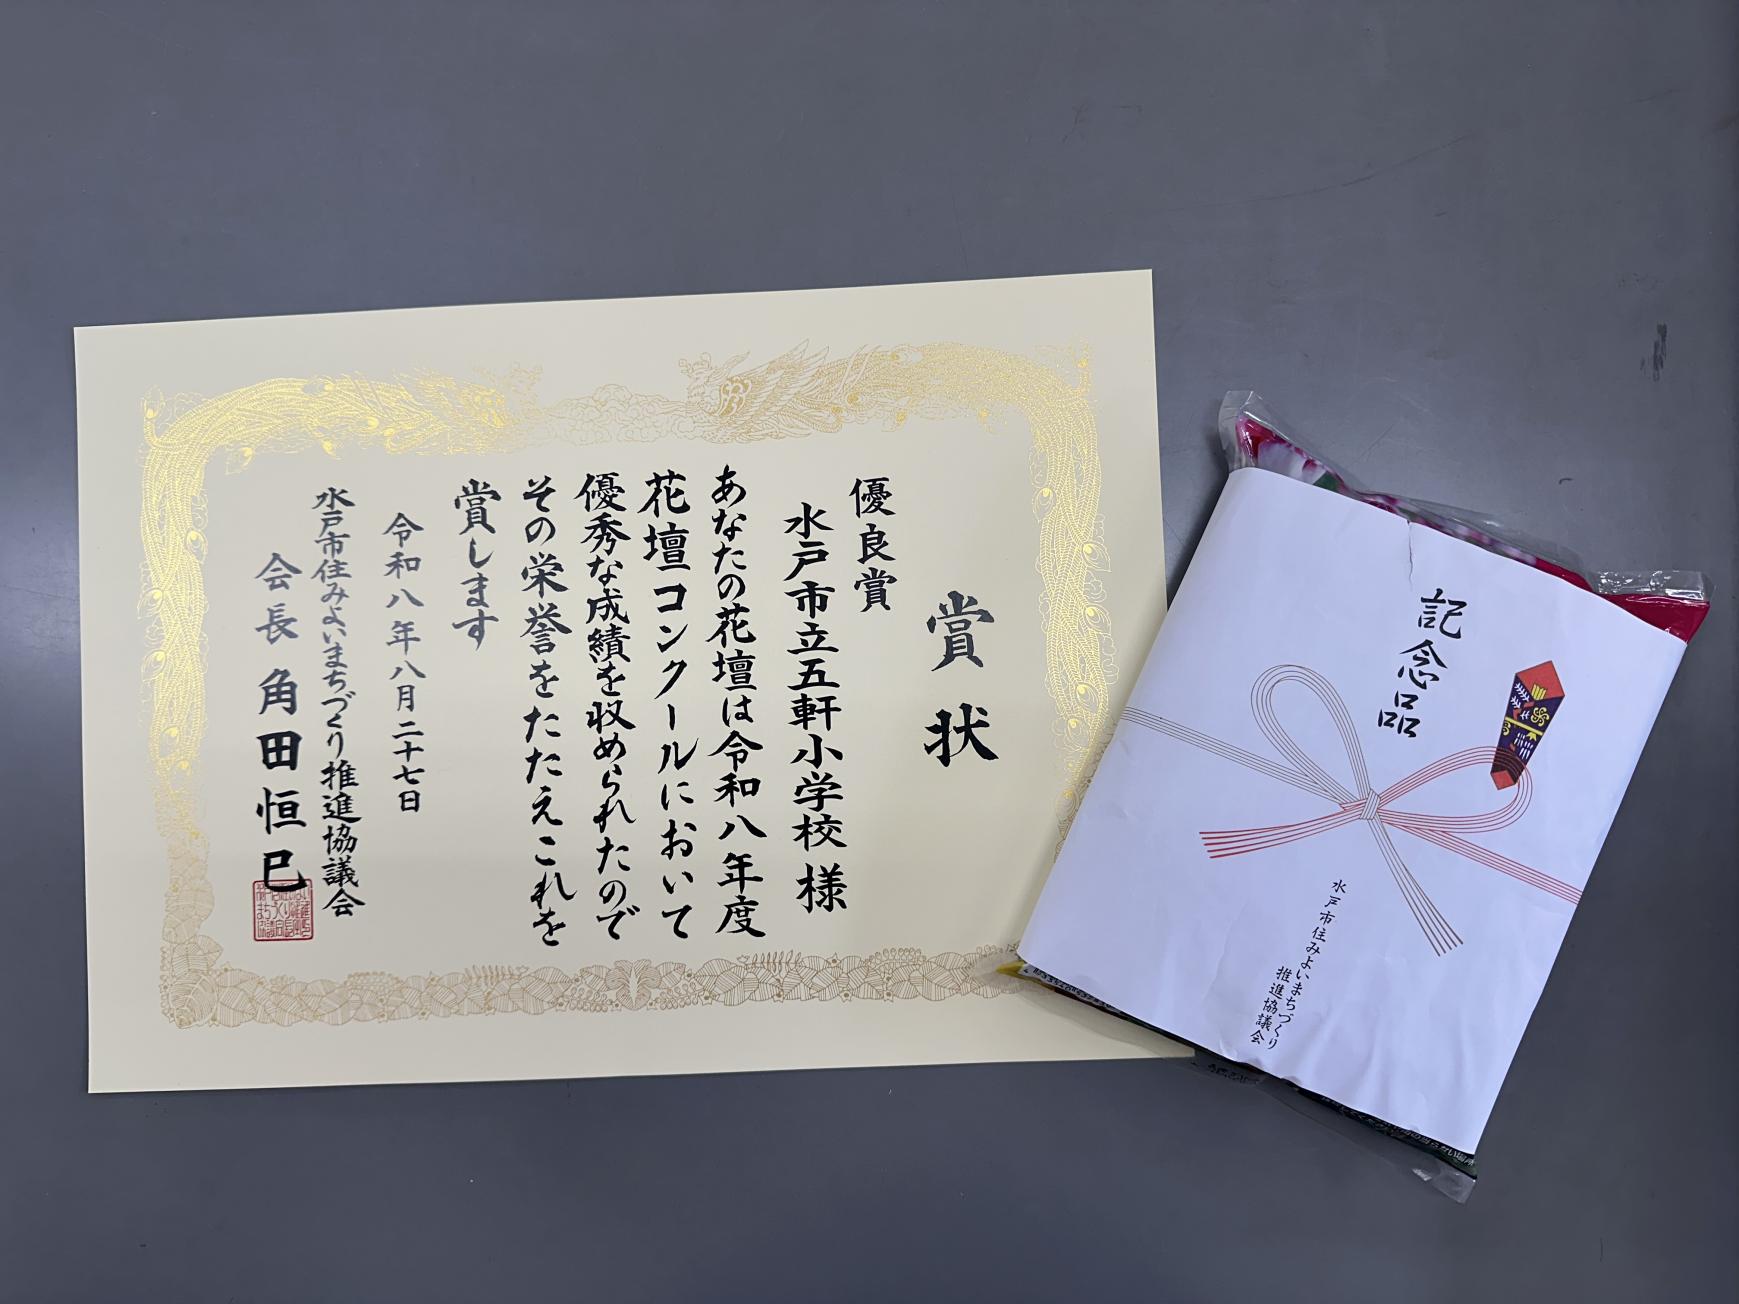 賞状
優良賞
水戸市立五軒小学校様
あなたの花壇は令和八年度
花壇コンクールにおいて
優秀な成績を収められたので
その栄誉をたたえこれを
賞します
令和八年八月二十七日
水戸市住みよいまちづくり推進協議会
会長 角田恒巳
記念品
水戸市住みよいまちづくり
推進協議会